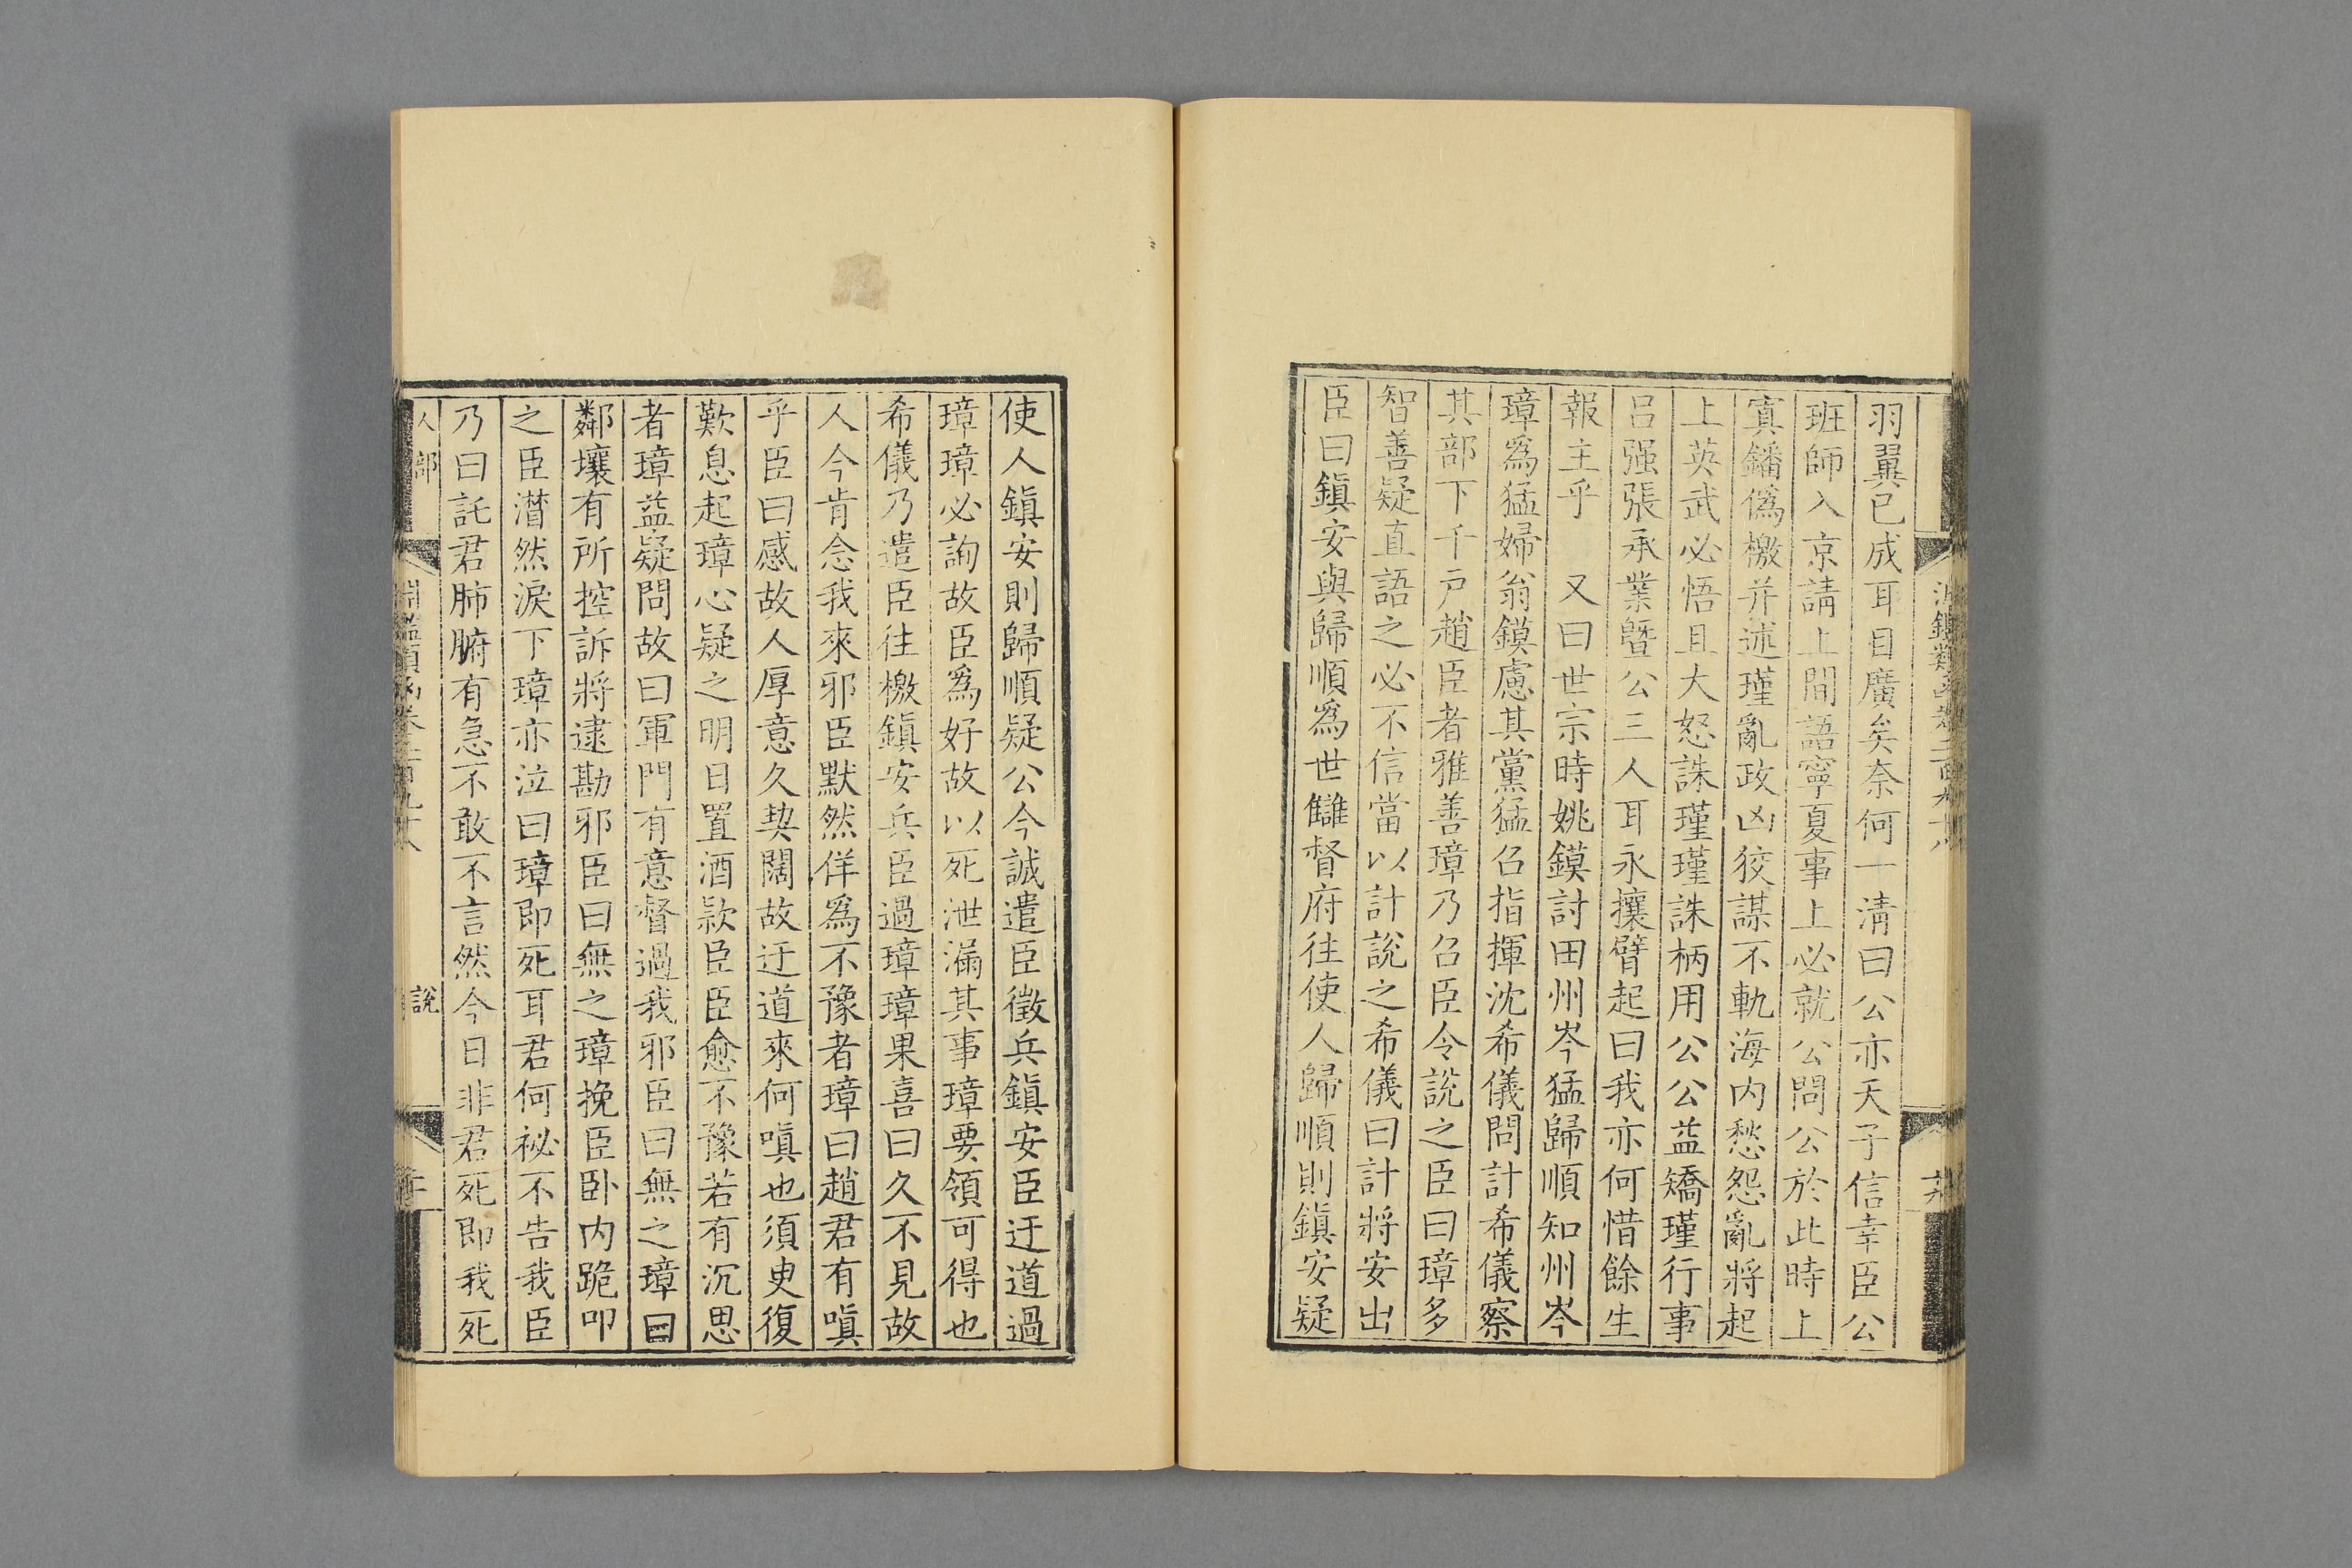 羽翼已成耳目廣矣奈何一淸曰公亦天子信幸臣公
班師入京請上間語寧夏事上必就公問公於此時上
寘鐇僞檄幷述瑾亂政凶狡謀不軌海内愁怨亂將起
上英武必悟且大怒誅瑾瑾誅柄用公公益矯瑾行事
吕强張承業曁公三人耳永攘臂起曰我亦何惜餘生
報主乎　又曰世宗時姚鏌討田州岑猛歸順知州岑
璋爲猛婦翁鏌慮其黨猛召指揮沈希儀問計希儀察
其部下千戸趙臣者雅善璋乃召臣令說之臣曰璋多
智善疑直語之必不信當以計說之希儀曰計將安出
臣曰鎭安與歸順爲世讎督府往使人歸順則鎭安疑
使人鎭安則歸順疑公今誠遣臣徵兵鎭安臣迂道過
璋璋必詢故臣爲好故以死泄漏其事璋要領可得也
希儀乃遣臣往檄鎭安兵臣過璋璋果喜曰久不見故
人今肯念我來邪臣默然佯爲不豫者璋曰趙君有嗔
乎臣曰感故人厚意久契闊故迂道來何嗔也須臾復
歎息起璋心疑之明日置酒款臣臣愈不豫若有沉思
者璋益疑問故曰軍門有意督過我邪臣曰無之璋曰
鄰壤有所控訴將逮勘邪臣曰無之璋挽臣卧内跪叩
之臣潸然淚下璋亦泣曰璋即死耳君何祕不告我臣
乃曰託君肺腑有急不敢不言然今日非君死即我死
人部
說